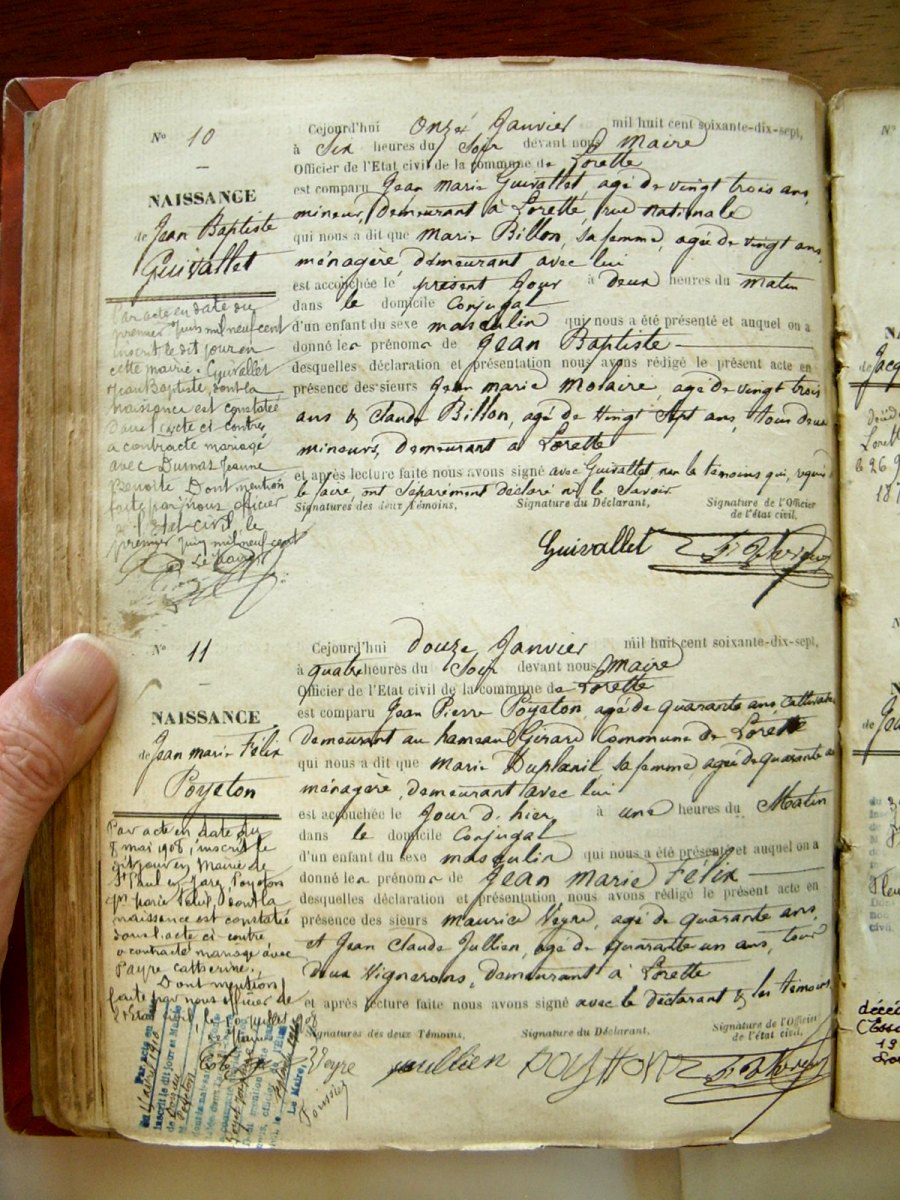 N° 10
NAISSANCE
de Jean Baptiste
Guivallet
Par acte en date du
premier juin mil neuf cent
inscrit le dit jour en
cette mairie. Guivallet
Jean Baptiste, dont la
naissance est constatée
dans l'acte ci contre
a contracté mariage
avec Dumas Jeanne
Benoite Dont mention
faite par nous officier
de l'Etat civil, le
premier juin mil neuf cent
Le Maire
Cejourd'hui Onze Janvier mil huit cent soixante-dix-sept,
à Six heures du Soir devant nous Maire
Officier de l'Etat civil de la commune de Lorette
est comparu Jean Marie Guivallet, agé de vingt trois ans,
mineur, demeurant à Lorette, rue nationale
qui nous a dit que Marie Billon, sa femme, agée de vingt ans
ménagère demeurant avec lui
est accouchée le présent jour à deux heures du matin
dans le domicile Conjugal
d'un enfant du sexe masculin qui nous a été présenté et auquel on a
donné le prénom de Jean Baptiste
desquelles déclaration et présentation nous avons rédigé le présent acte en
présence des sieurs Jean Marie Molaire, agé de vingt trois
ans & Claude Billon, agé de vingt sept ans, tous deux
mineurs, demeurant à Lorette
et après lecture faite nous avons signé avec Guivallet, non les témoins qui, requis de
le faire, ont séparément déclaré ne le savoir
Signatures des deux Témoins, Signature du Déclarant, Signature de l'Officier
de l'état civil,
Guivallet
N° 11
NAISSANCE
de Jean Marie Félix
Poyeton
Par acte en date du
8 mai 1908, inscrit le
dit jour en Mairie de
St Paul en Jarez, Poyeton
Jn Marie Félix, dont la
naissance est constatée
dans l'acte ci contre
a contracté mariage avec
Payre Catherine.
Dont mention
faite par nous officier de
l'Etat civil, le
Cejourd'hui douze Janvier mil huit cent soixante-dix-sept,
à quatre heures du Soir devant nous Maire
Officier de l'Etat civil de la commune de Lorette
est comparu Jean Pierre Poyeton, agé de quarante ans, Cultivateur
demeurant au hameau Girard Commune de Lorette
qui nous a dit que Marie Duplanil sa femme, agée de quarante ans
ménagère, demeurant avec lui
est accouchée le jour d'hier à une heures du Matin
dans le domicile Conjugal
d'un enfant du sexe masculin qui nous a été présenté et auquel on a
donné le prénom de Jean Marie Félix
desquelles déclaration et présentation nous avons rédigé le présent acte en
présence des sieurs Maurice Veyre, agé de quarante ans,
et Jean Claude Jullien, agé de quarante un ans, tous
deux vignerons, demeurant à Lorette
et après lecture faite nous avons signé avec le déclarant & les témoins
Signatures des deux Témoins, Signature du Déclarant, Signature de l'Officier
de l'état civil,
Veyre Jullien POYTTON
Le Maire,